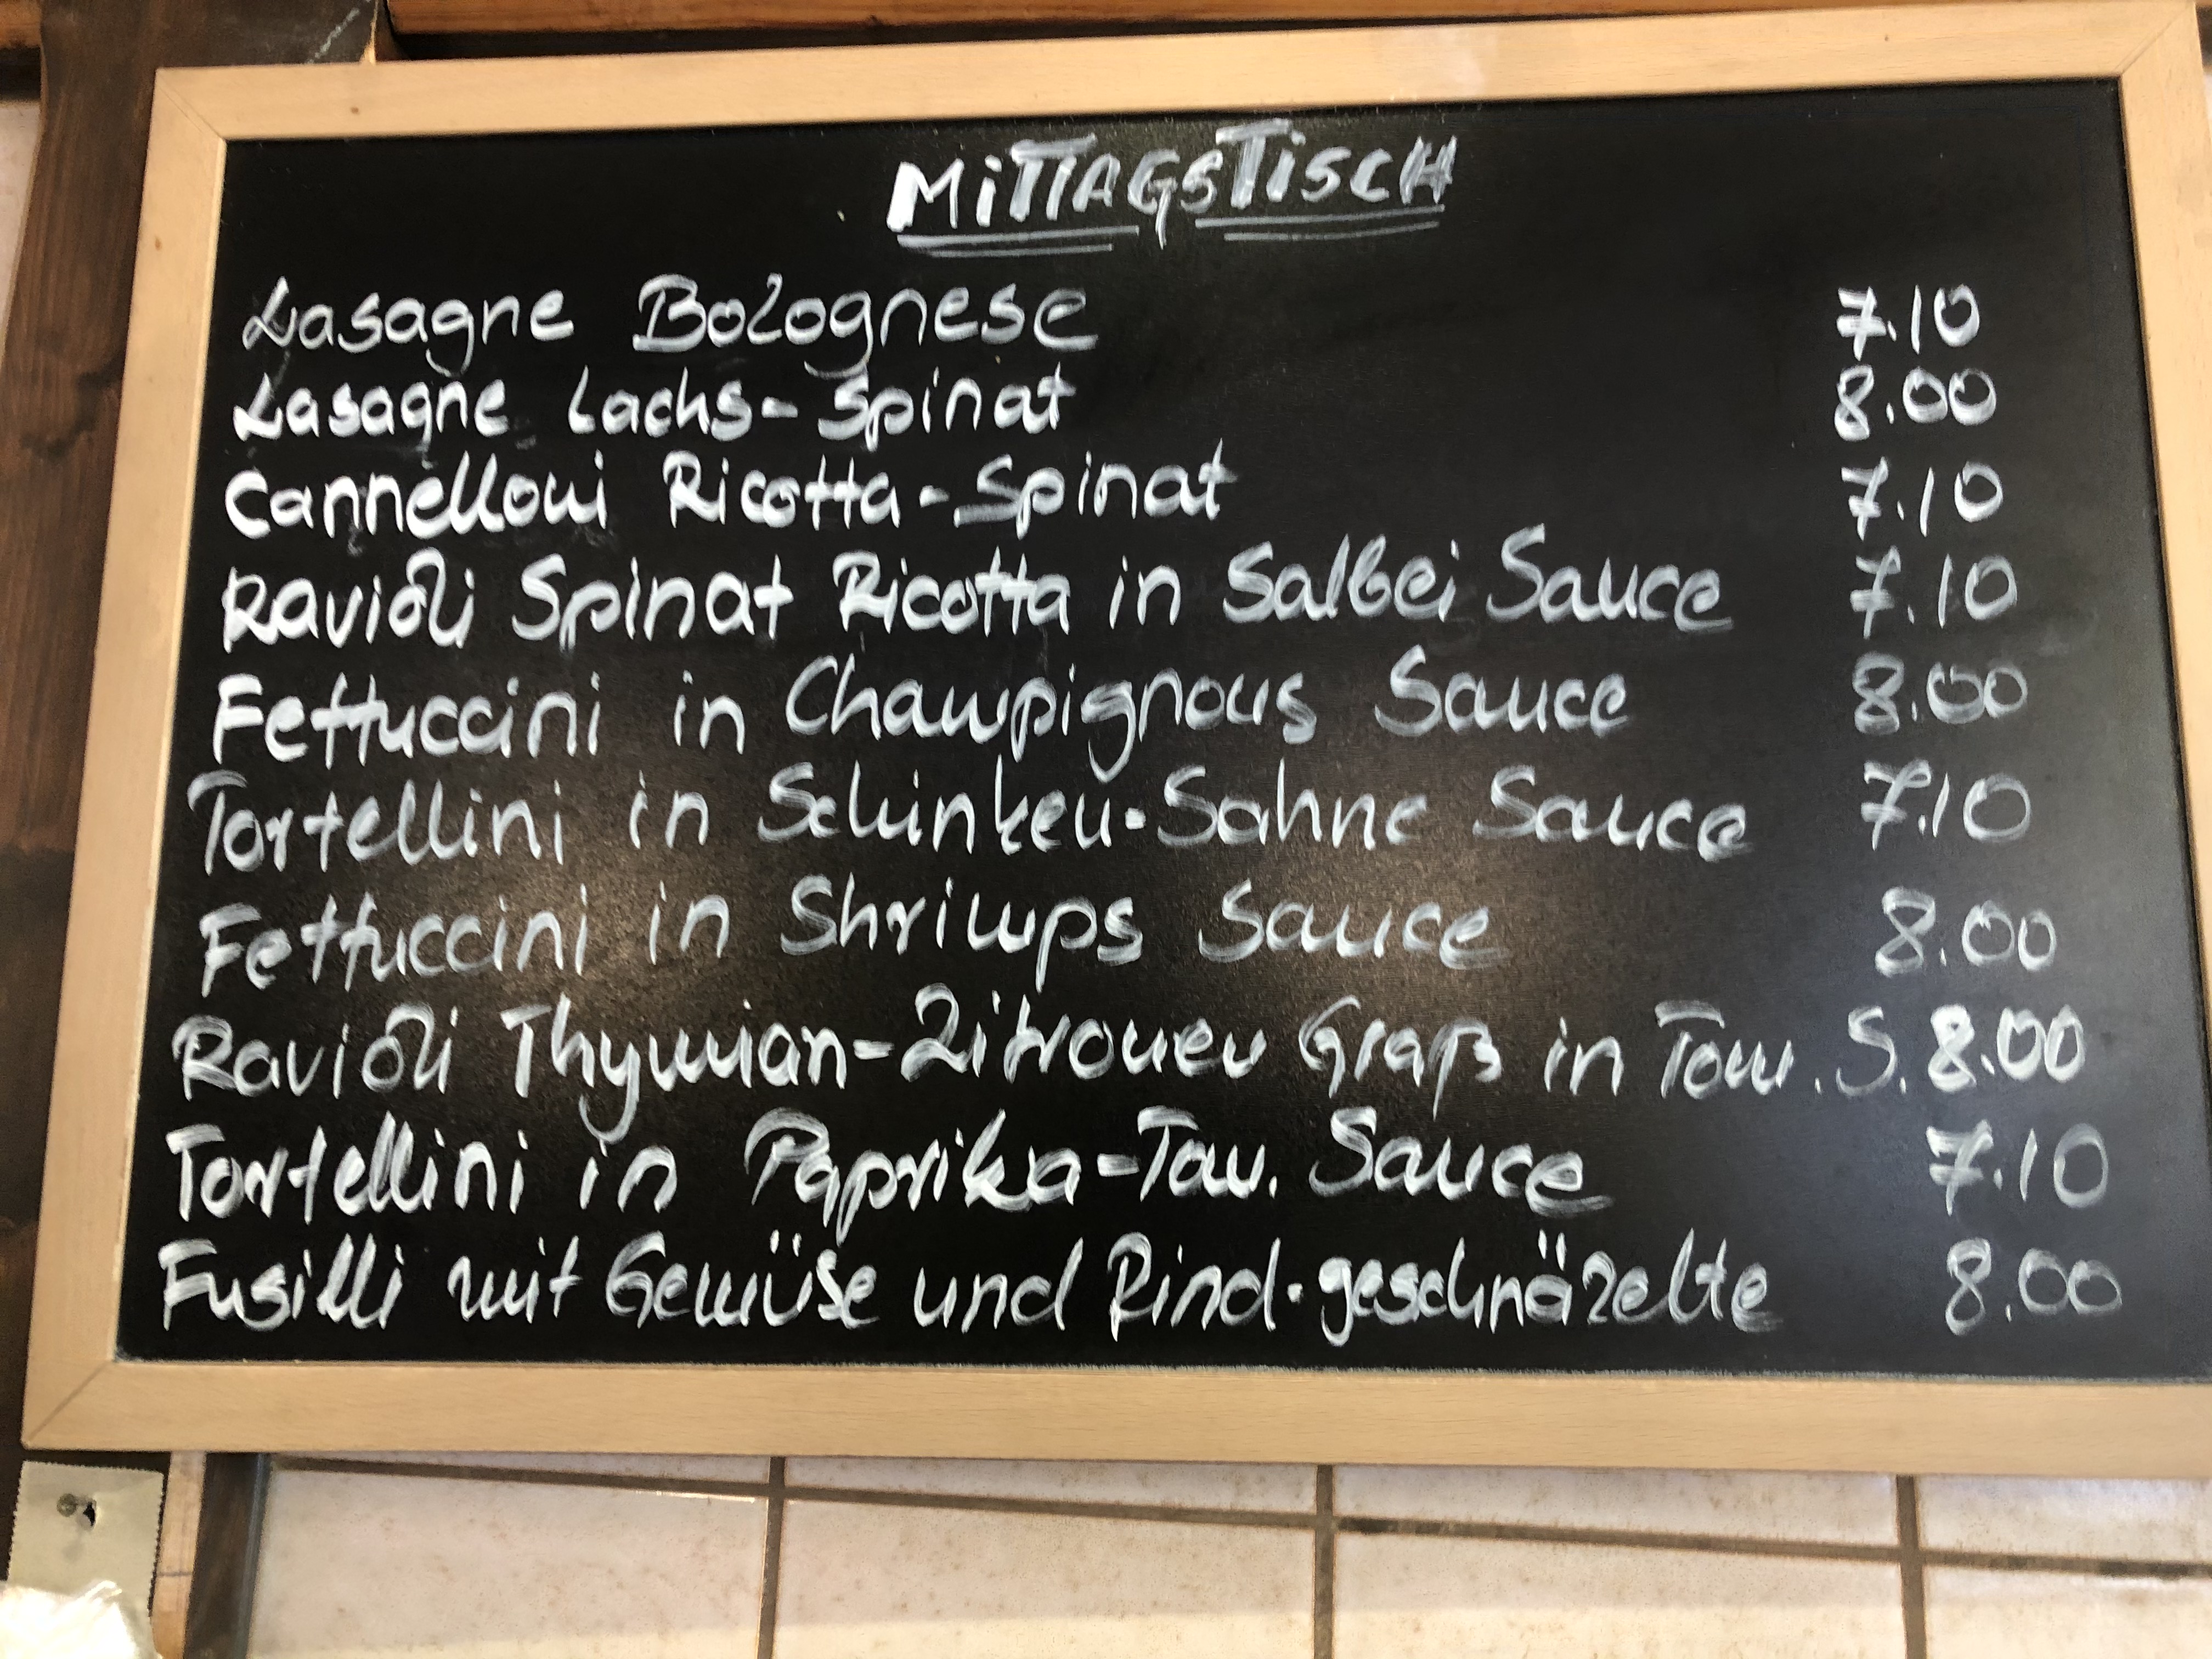 MiTTAGSTiSCH
Lasagne Bolognese 7.10
Lasagne Lachs-Spinat 8.00
Cannelloni Ricotta-Spinat 7.10
Ravioli Spinat Ricotta in Salbei Sauce 7.10
Fettuccini in Champignons Sauce 8.00
Tortellini in Schinken-Sahne Sauce 7.10
Fettuccini in Shrimps Sauce 8.00
Ravioli Thymian-Zitronen Graß in Tom. S. 8.00
Tortellini in Paprika-Tom. Sauce 7.10
Fusilli mit Gemüse und Rind-geschnäzelte 8.00